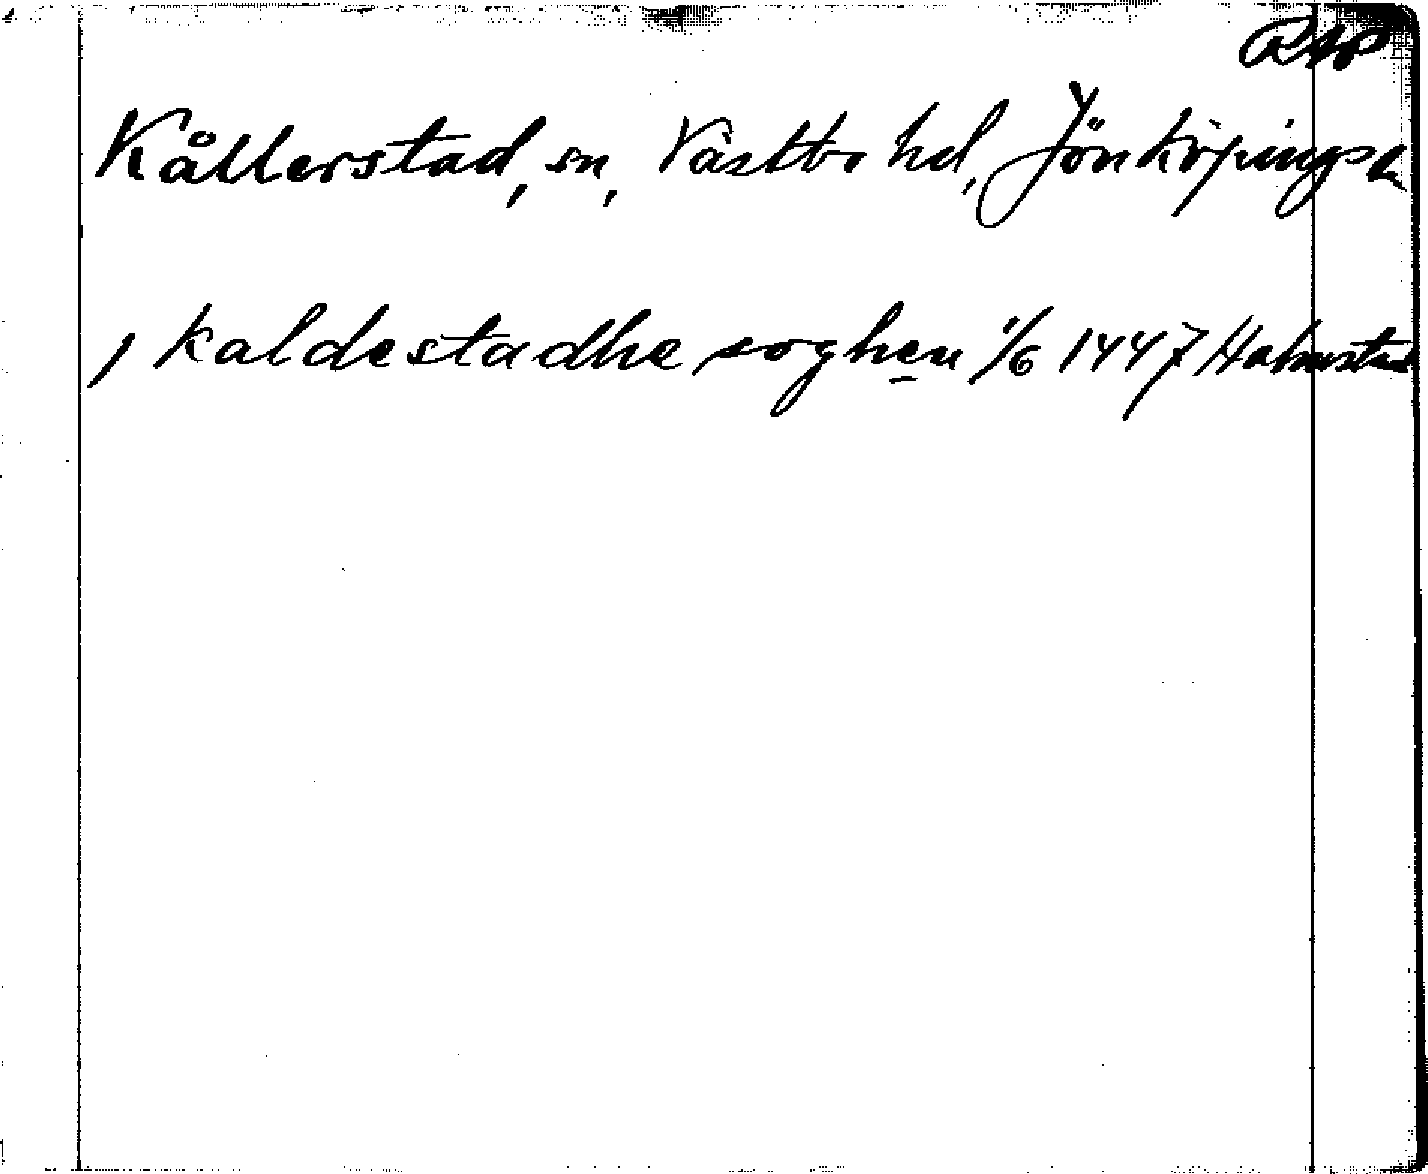 Kållerstad, sn, Västbo hd, Jönköpings l.
, kaldestadhe soghen 1/6 1447 Halmstad